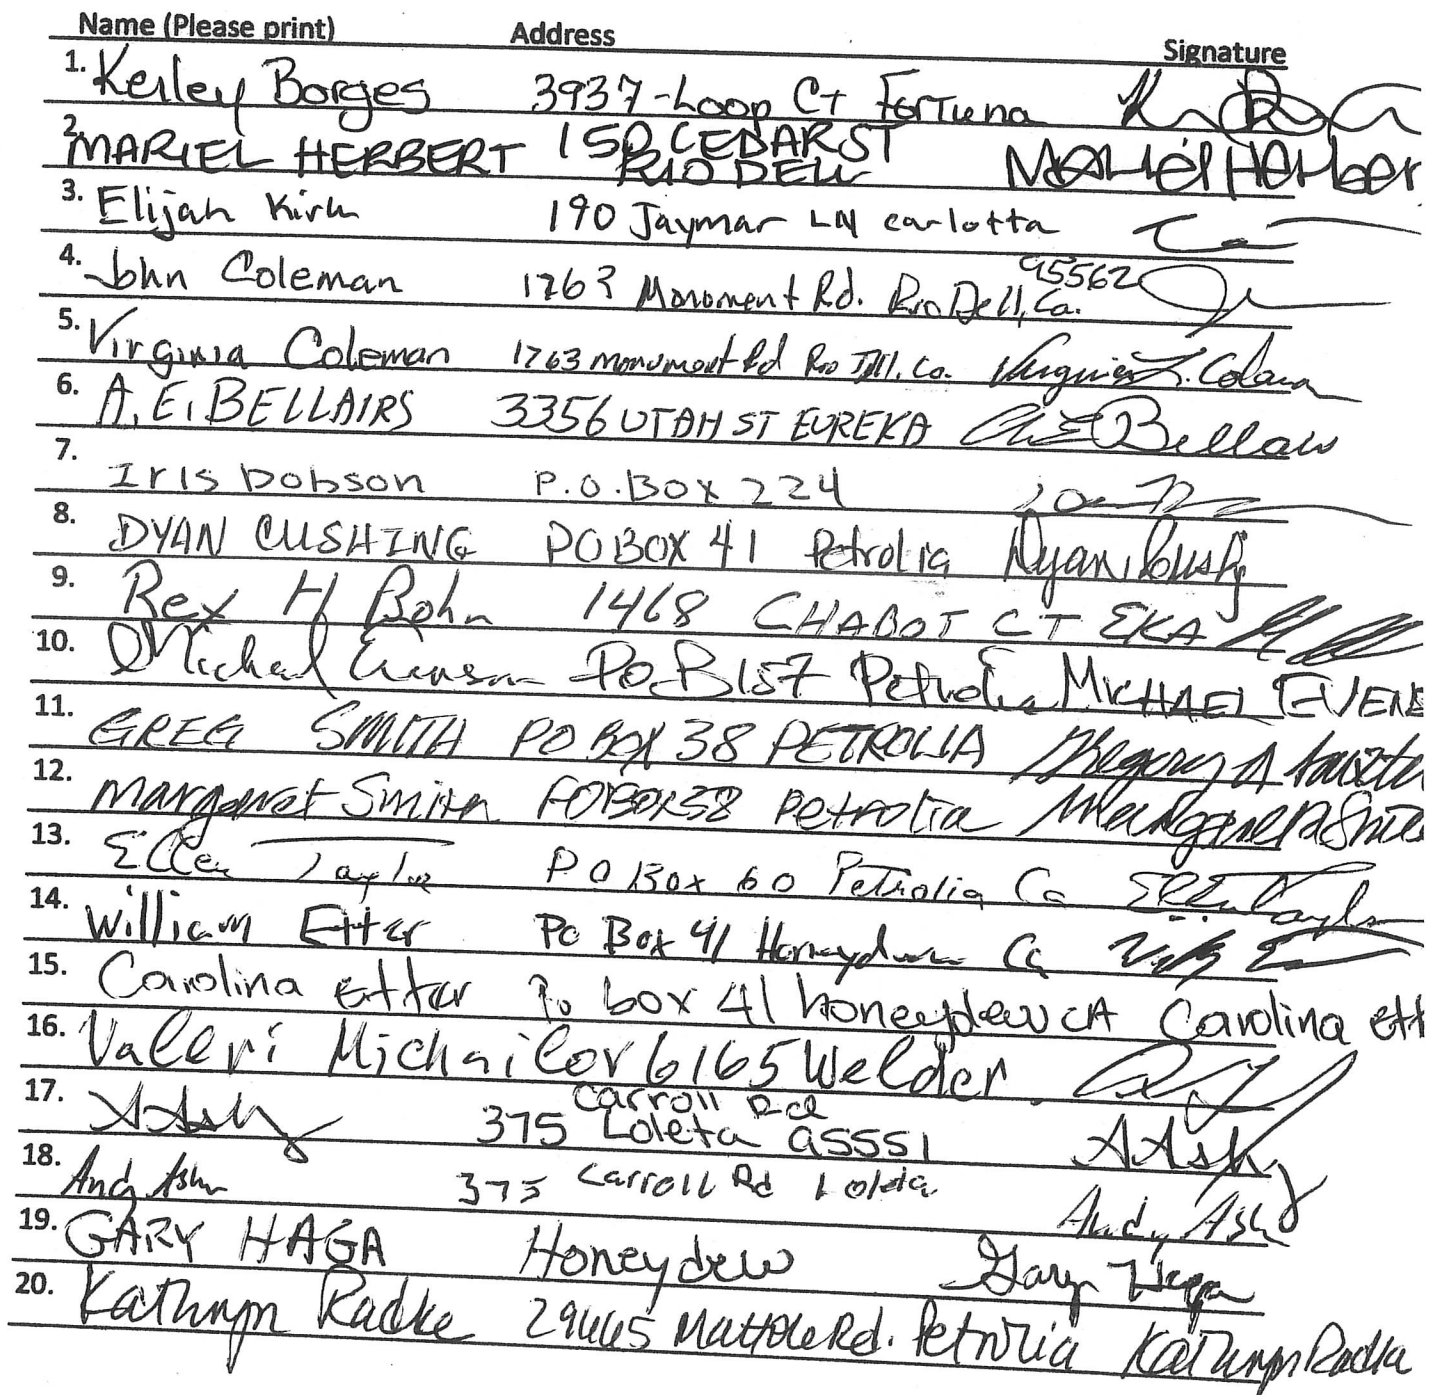 Name (Please print) Address Signature
1. Kerley Borges 3937-Loop Ct Fortuna
2. MARIEL HERBERT 150 CEDAR ST RIO DELL Mariel Herber
3. Elijah Kirk 190 Jaymar LN carlotta
4. John Coleman 1763 Monument Rd. Rio Dell, Ca. 95562
5. Virginia Coleman 1763 monument Rd Rio Dell, Ca. Virginia L. Colema
6. A.E. BELLAIRS 3356 UTAH ST EUREKA A E Bellairs
7. Iris Dobson P.O. Box 224
8. DYAN CUSHING PO BOX 41 Petrolia Dyan Cushing
9. Rex H Bohn 1468 CHABOT CT EKA
10. Michael Evenson PO B 157 Petrolia MICHAEL EVENS
11. GREG SMITH PO BOX 38 PETROLIA Gregory A
12. Margaret Smith PO BOX 38 Petrolia Margaret Smit
13. Ellen Taylor P O Box 60 Petrolia Ca Ellen Taylor
14. William Etter Po Box 41 Honeydew Ca
15. Carolina etter Po box 41 honeydew CA Carolina ett
16. Valeri Michailov 6165 Welder
17. A Ash 375 Carroll Rd Loleta 95551 A Ash
18. Andy Ash 375 Carroll Rd Loleta Andy Ash
19. GARY HAGA Honeydew Gary Haga
20. Kathryn Radke 29665 Mattole Rd. Petrolia Kathryn Radke